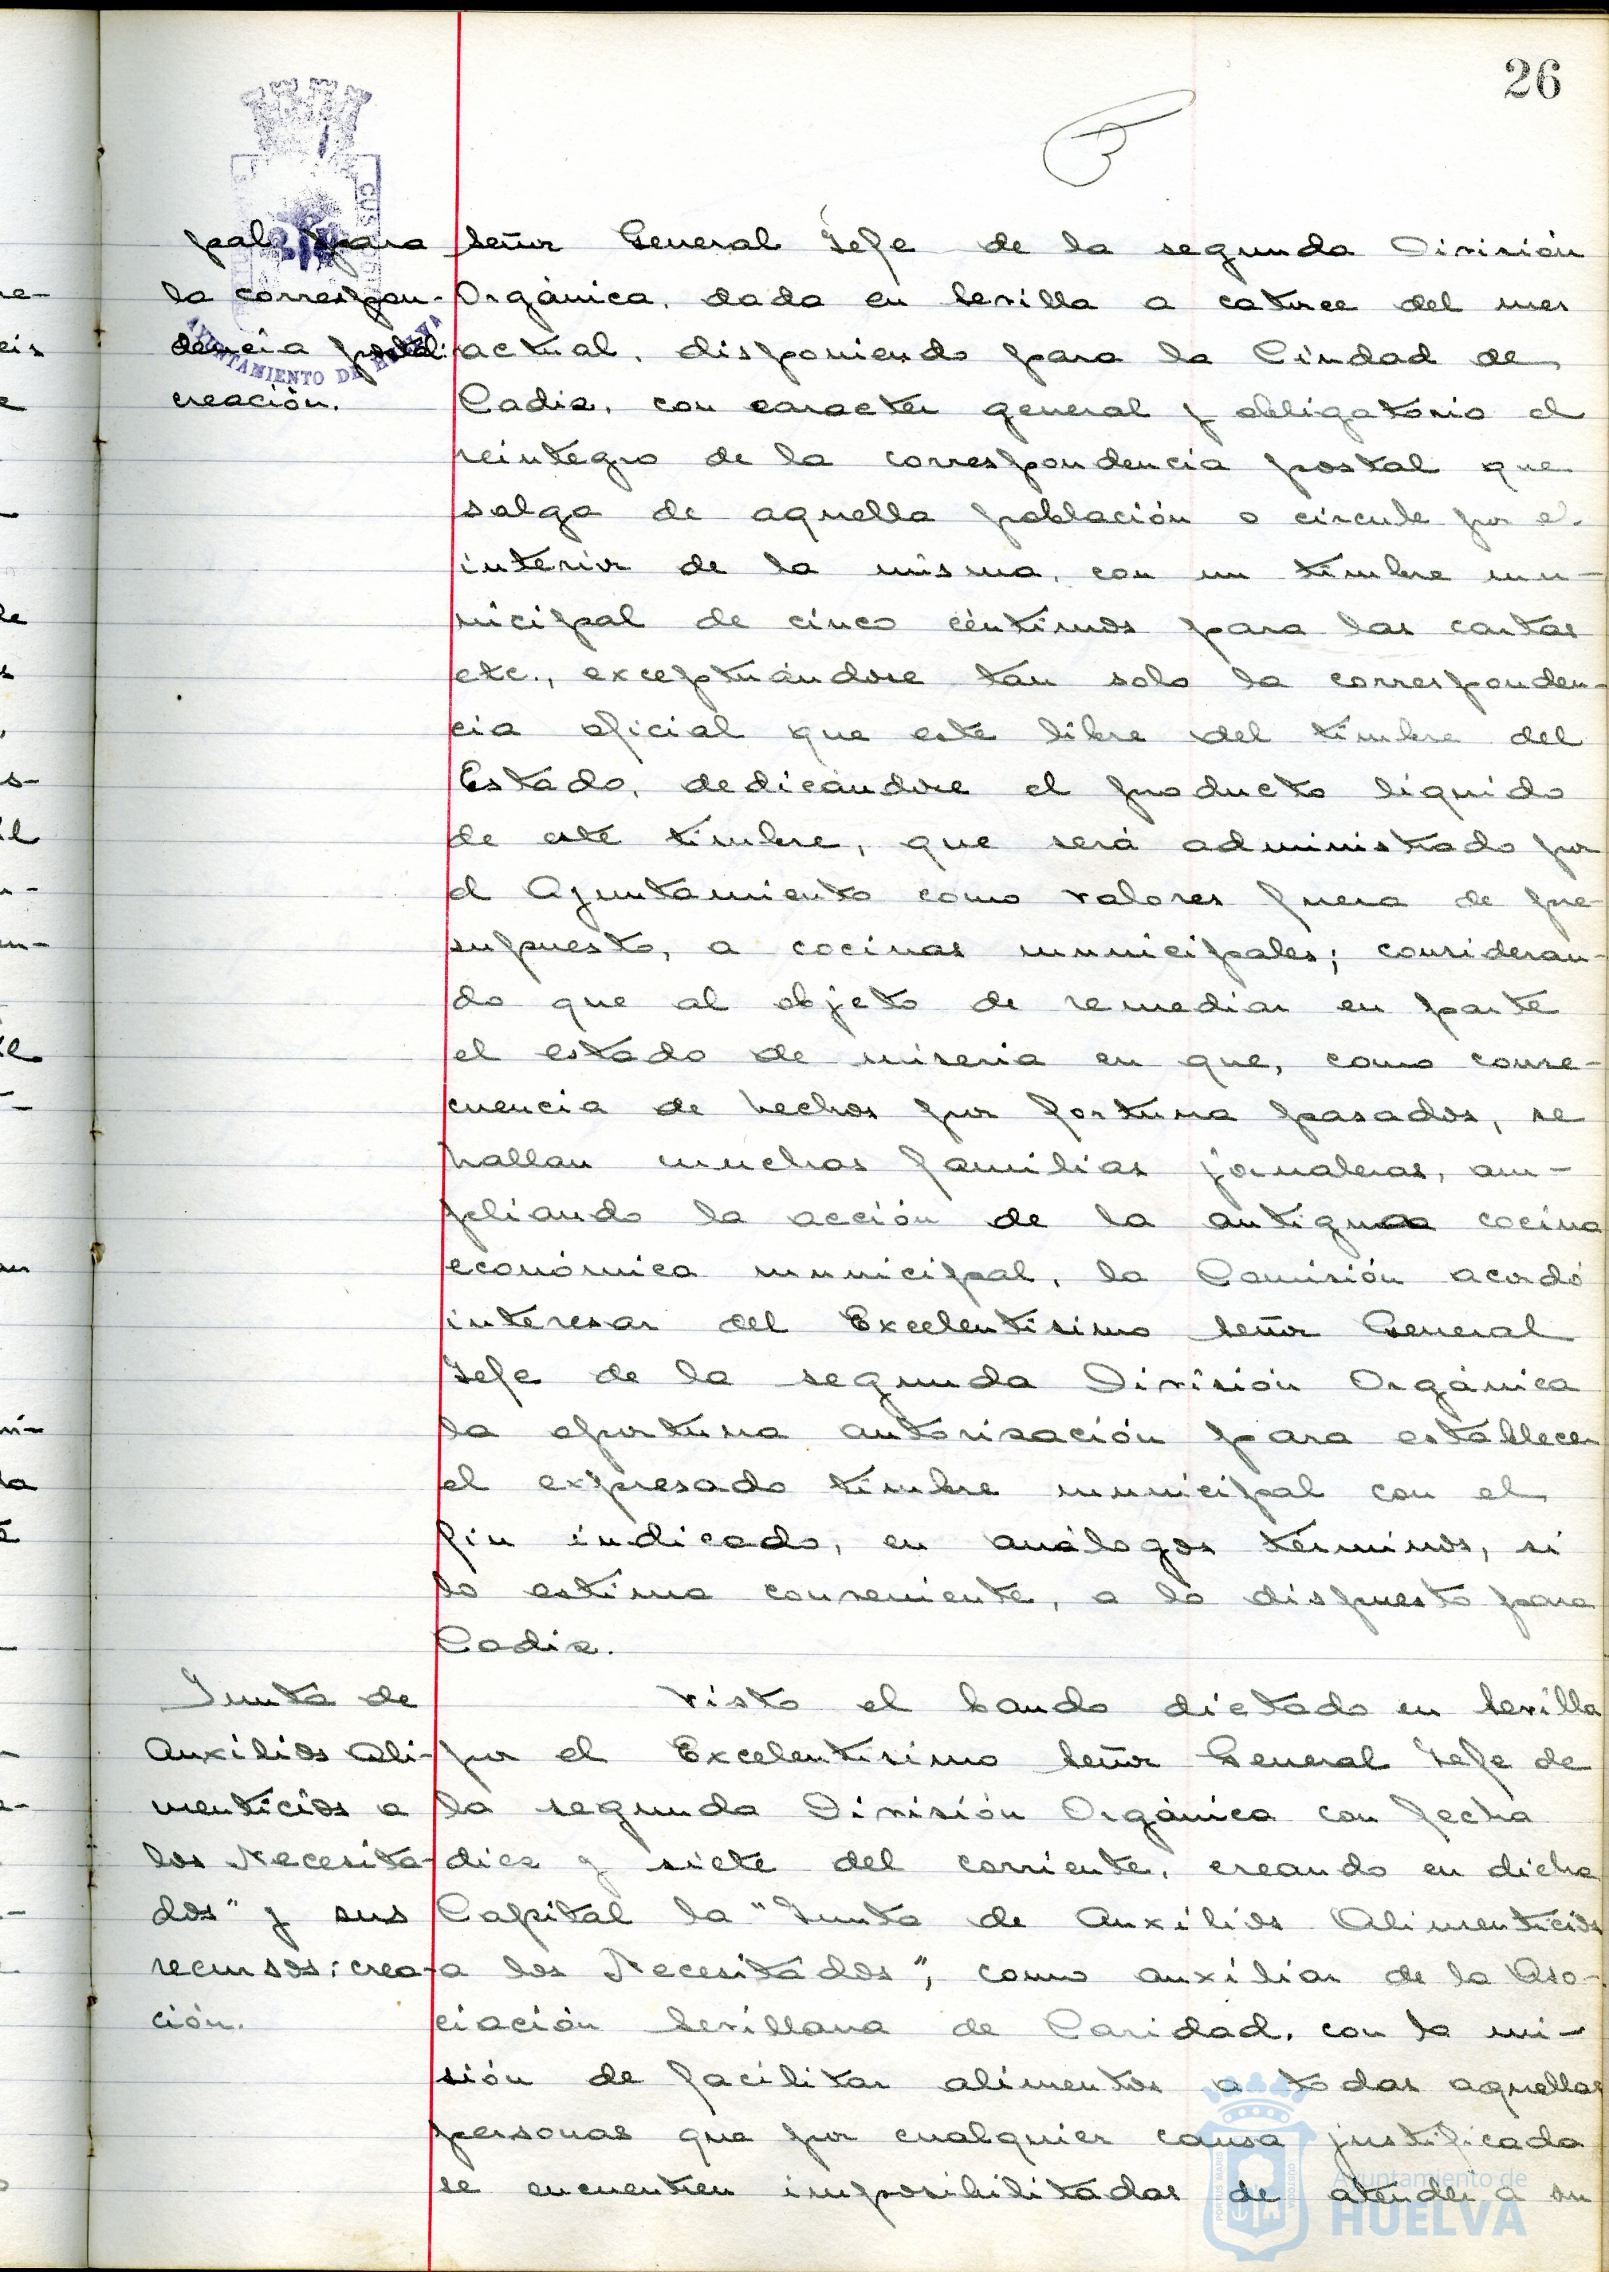 26
pal para
la correspon-
dencia postal:
creación.
Señor General Jefe de la segunda Division
Orgánica, dada en Sevilla a catorce del mes
actual, disponiendo para la Ciudad de
Cadiz, con caracter general y obligatorio el
reintegro de la correspondencia postal que
salga de aquella población o circule por el
interior de la misma, con un timbre mu-
nicipal de cinco céntimos para las cartas
etc., exceptuándose tan solo la corresponden-
cia oficial que este libre del timbre del
Estado, dedicándose el producto líquido
de este timbre, que será administrado por
el Ayuntamiento como valores fuera de pre-
supuesto, a cocinas municipales; consideran-
do que al objeto de remediar en parte
el estado de miseria en que, como conse-
cuencia de hechos por fortuna pasados, se
hallan muchas familias jornaleras, am-
pliando la acción de la antigua cocina
económica municipal, la Comisión acordó
interesar del Excelentísimo Señor General
Jefe de la segunda División Orgánica
la oportuna autorización para establecer
el expresado timbre municipal con el
fin indicado, en análogos términos, si
lo estima conveniente, a lo dispuesto para
Cadiz.
Junta de
Auxilios Ali-
menticios a
los Necesita-
dos" y sus
recursos: crea-
ción.
Visto el bando dictado en Sevilla
por el Excelentísimo Señor General Jefe de
la segunda División Orgánica con fecha
diez y siete del corriente, creando en dicha
Capital la "Junta de Auxilios Alimenticios
a los Necesitados", como auxiliar de la Aso-
ciación Sevillana de Caridad, con la mi-
sión de facilitar alimentos a todas aquellas
personas que por cualquier causa justificada
se encuentren imposibilitadas de atender a su
AYUNTAMIENTO DE HUELVA
Ayuntamiento de
HUELVA